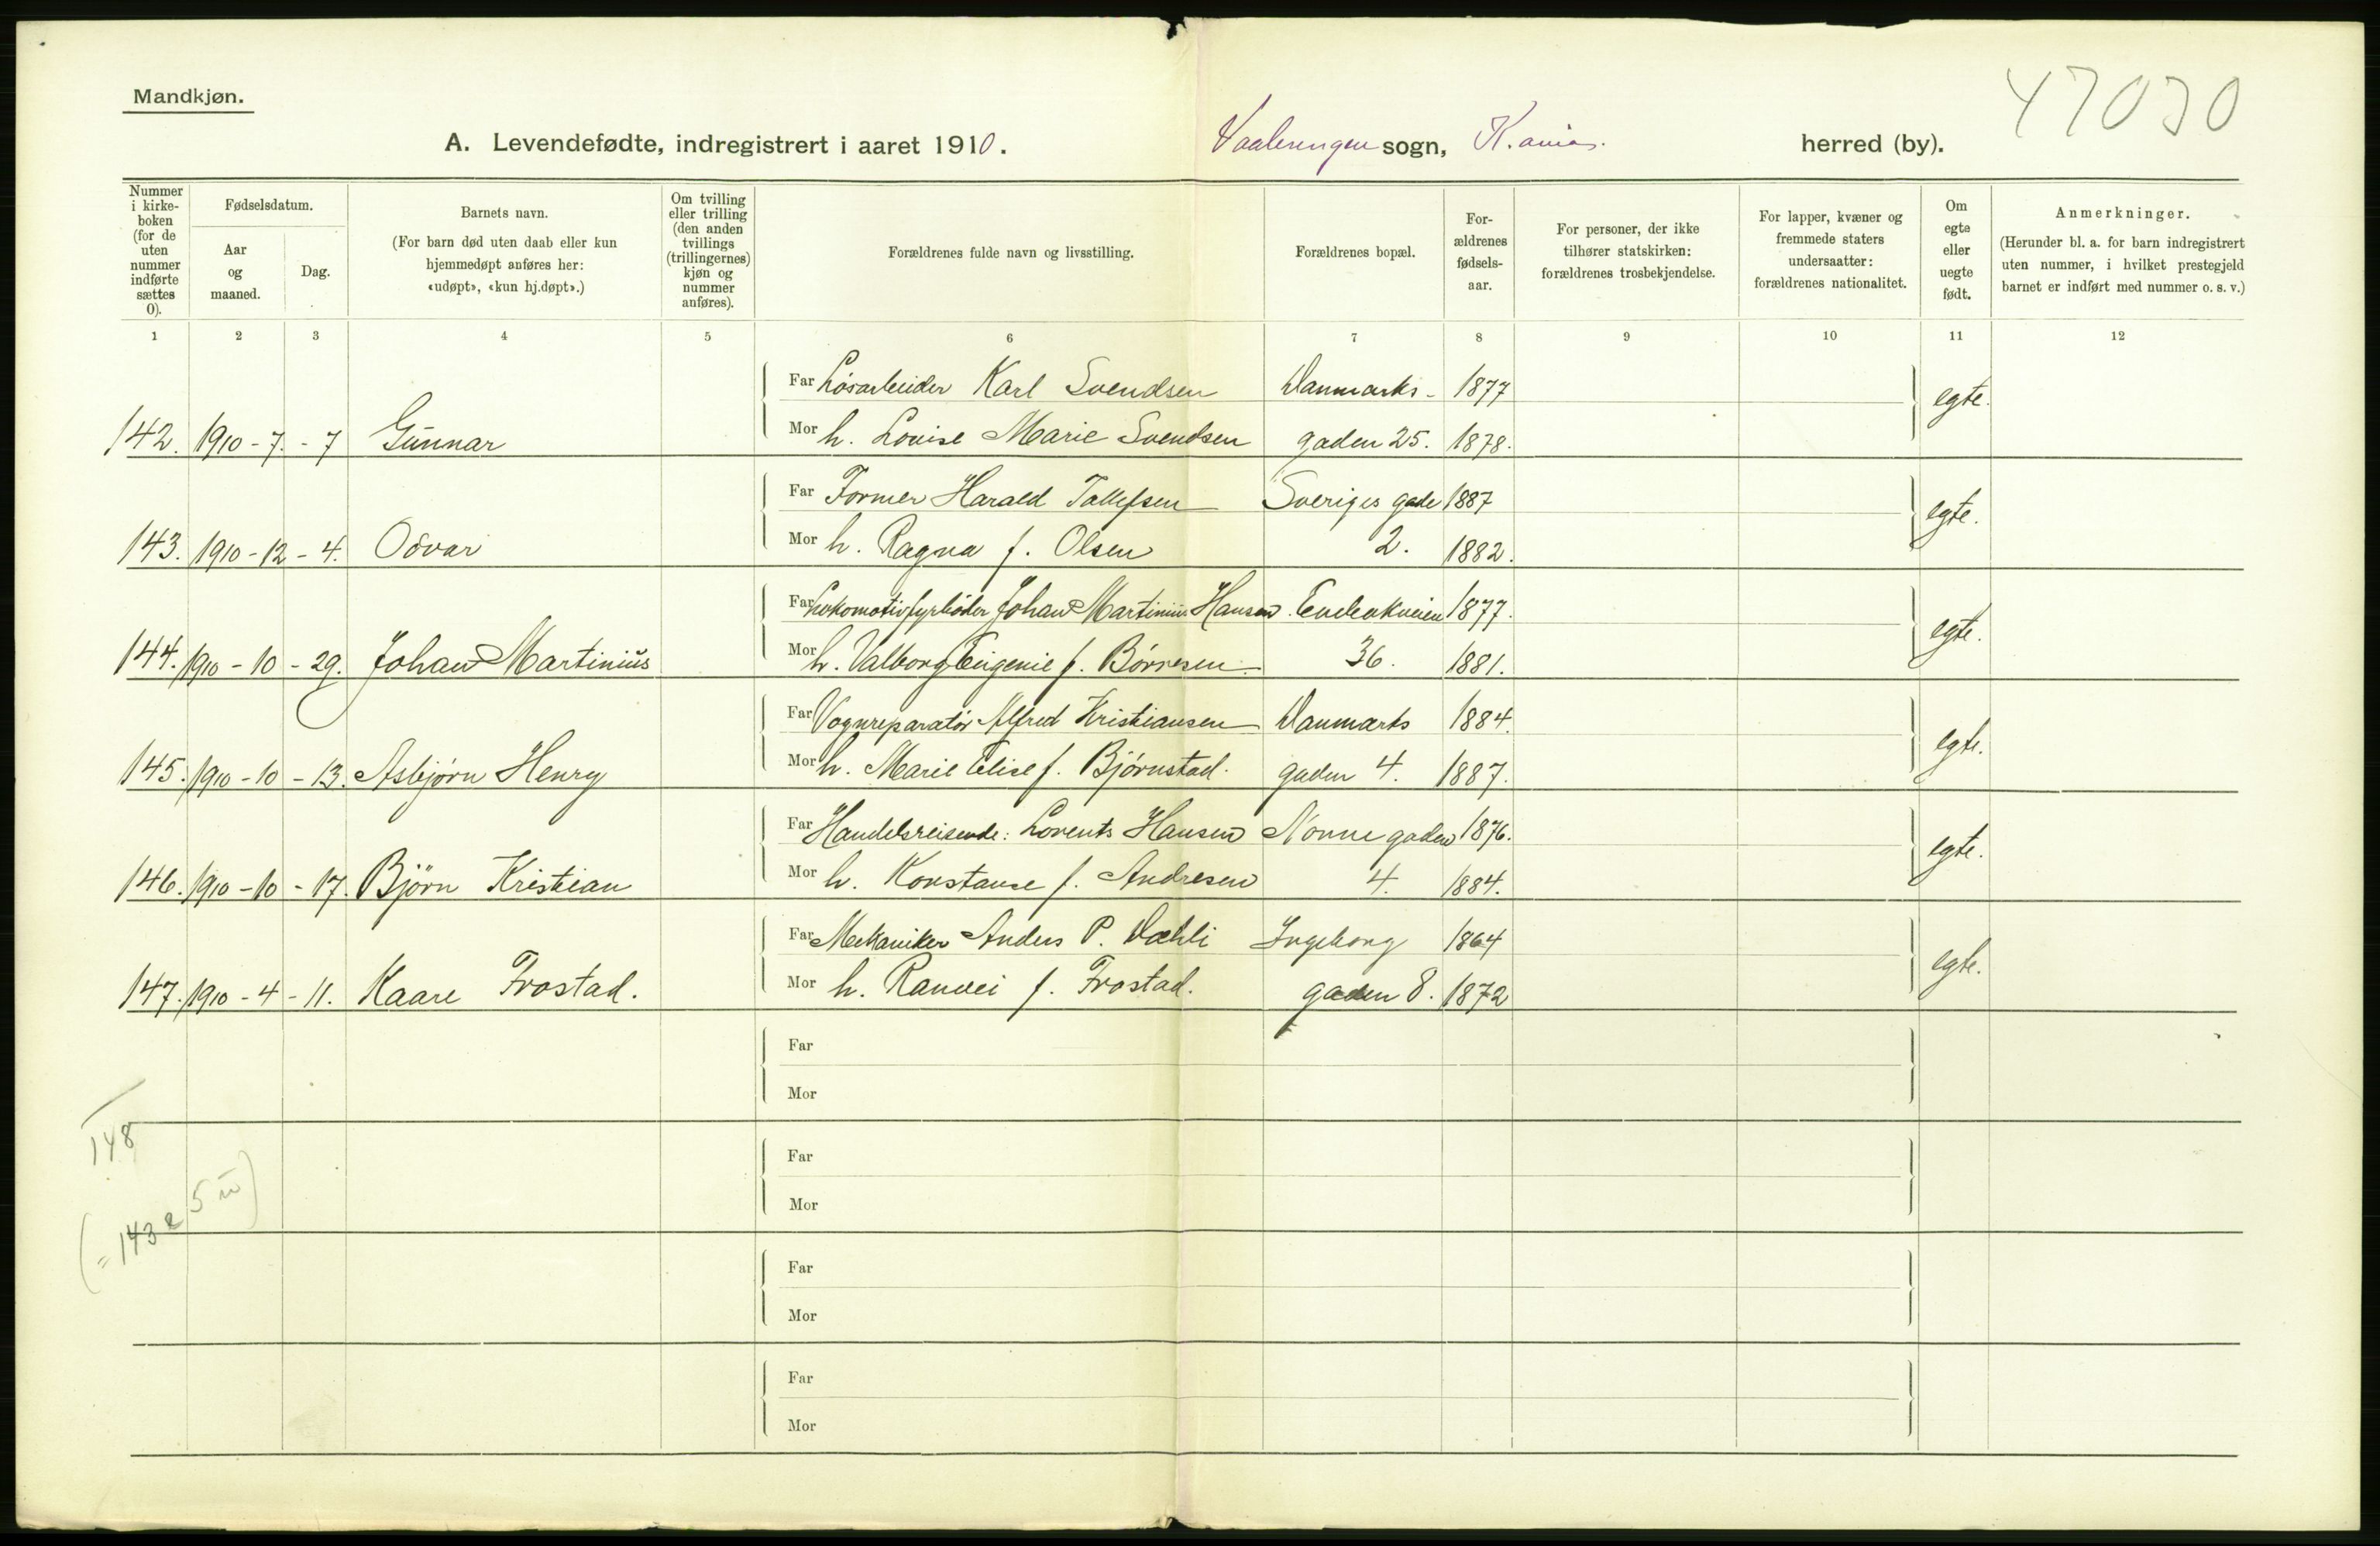 Mandkjøn.
47030
A. Levendefødte, indregistrert i aaret 1910. Vaalerengen sogn, K.ania. herred (by).
Nummer i kirke-boken (for de uten nummer indførte sættes 0).
Fødselsdatum.
Aar og maaned.
Dag.
Barnets navn.
(For barn død uten daab eller kun hjemmedøpt anføres her: «udøpt», «kun hj.døpt».)
Om tvilling eller trilling (den anden tvillings (trillingernes) kjøn og nummer anføres).
Forældrenes fulde navn og livsstilling.
Forældrenes bopæl.
For-ældrenes fødsels-aar.
For personer, der ikke tilhører statskirken: forældrenes trosbekjendelse.
For lapper, kvæner og fremmede staters undersaatter: forældrenes nationalitet.
Om egte eller uegte født.
Anmerkninger.
(Herunder bl. a. for barn indregistrert uten nummer, i hvilket prestegjeld barnet er indført med nummer o. s. v.)
1 2 3 4 5 6 7 8 9 10 11 12
Far Løsarbeider Karl Svendsen Danmarks- 1877 egte.
142. 1910-7-7 Gunnar Mor h. Lovise Marie Svendsen gaden 25. 1878.
Far Former Harald Tollefsen Sveriges gade 1887 egte.
143. 1910-12-4. Odvar Mor h. Ragna f. Olsen 2. 1882.
Far Lokomotivfyrbøder Johan Martinius Hansen Enebakveien 1877. egte.
144. 1910-10-29. Johan Martinius Mor h. Valborg Eugenie f. Børresen. 36. 1881.
Far Vognreparatør Alfred Kristiansen Danmarks 1884. egte.
145. 1910-10-13. Asbjørn Henry Mor h. Marie Elise f. Bjørnstad. gaden 4. 1887.
Far Handelsreisende: Lorents Hansen Nonnegaden 1876. egte.
146. 1910-10-17. Björn Kristian Mor h. Konstanse f. Andresen 4. 1884.
Far Mekaniker Anders P. Dæhli Ingeborg 1864 egte.
147. 1910-4-11. Kaare Frostad. Mor h. Ranvei f. Frostad. gaden 8. 1872
Far
Mor
148
Far
Mor
(=143 e 5 u)
Far
Mor
Far
Mor